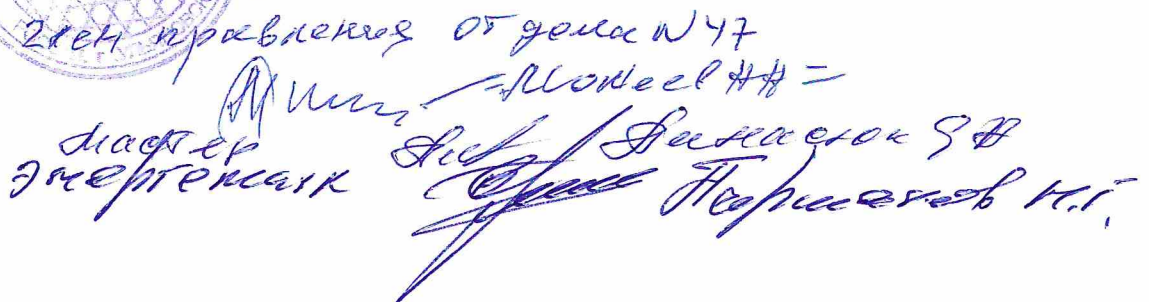 член правления от дома N 47
=Мокеев НН=
Мастер Панасюк
энергетик Пирманов Н.Г.